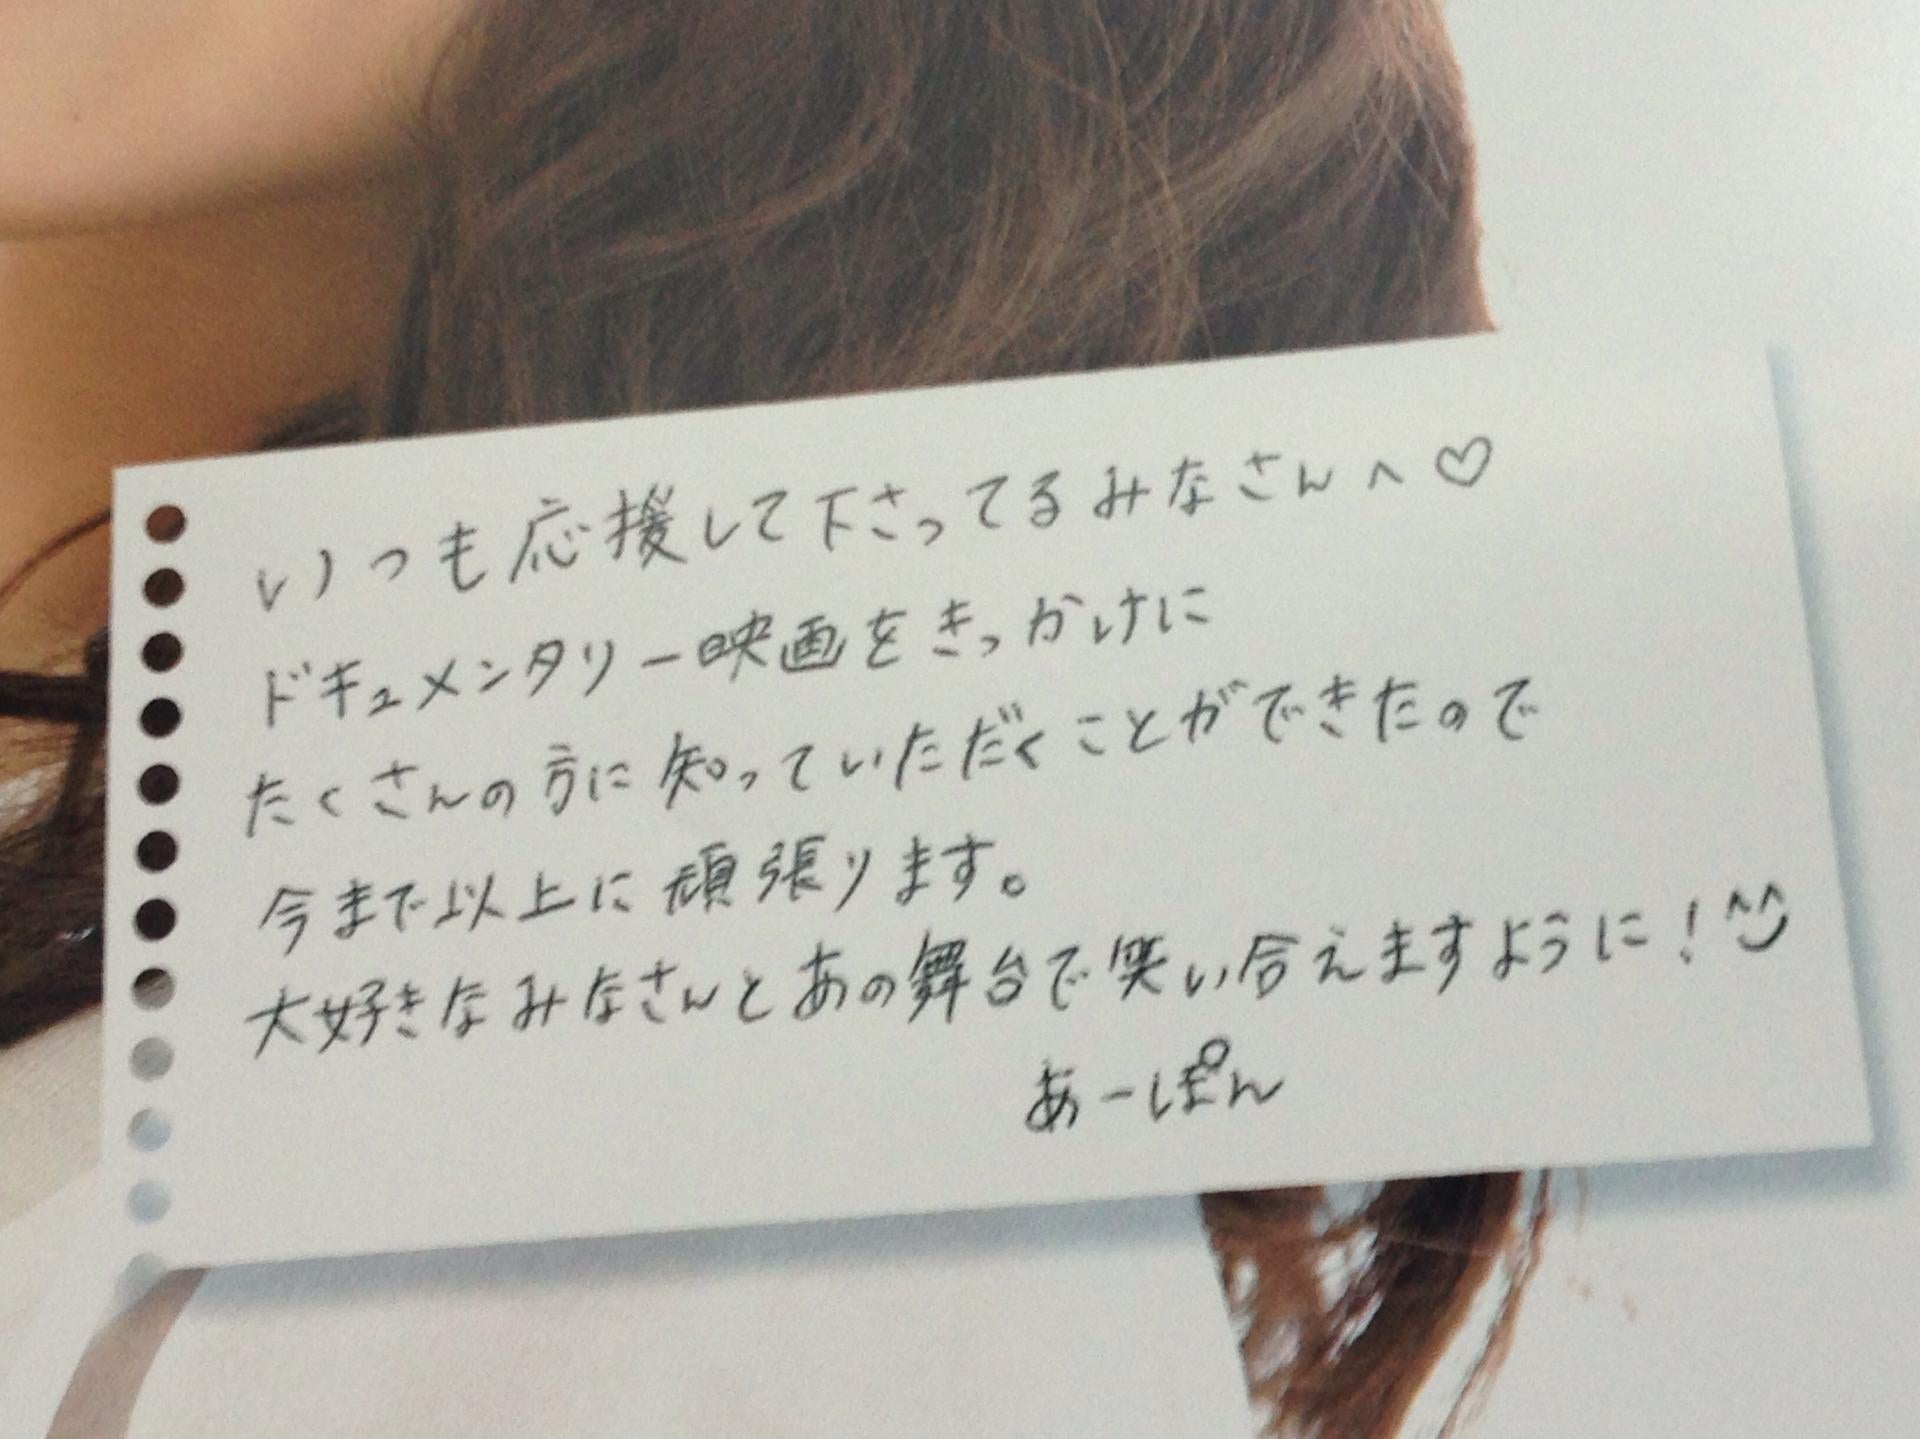 いつも応援して下さってるみなさんへ♡
ドキュメンタリー映画をきっかけに
たくさんの方に知っていただくことができたので
今まで以上に頑張ります。
大好きなみなさんとあの舞台で笑い合えますように！^^
あーぽん